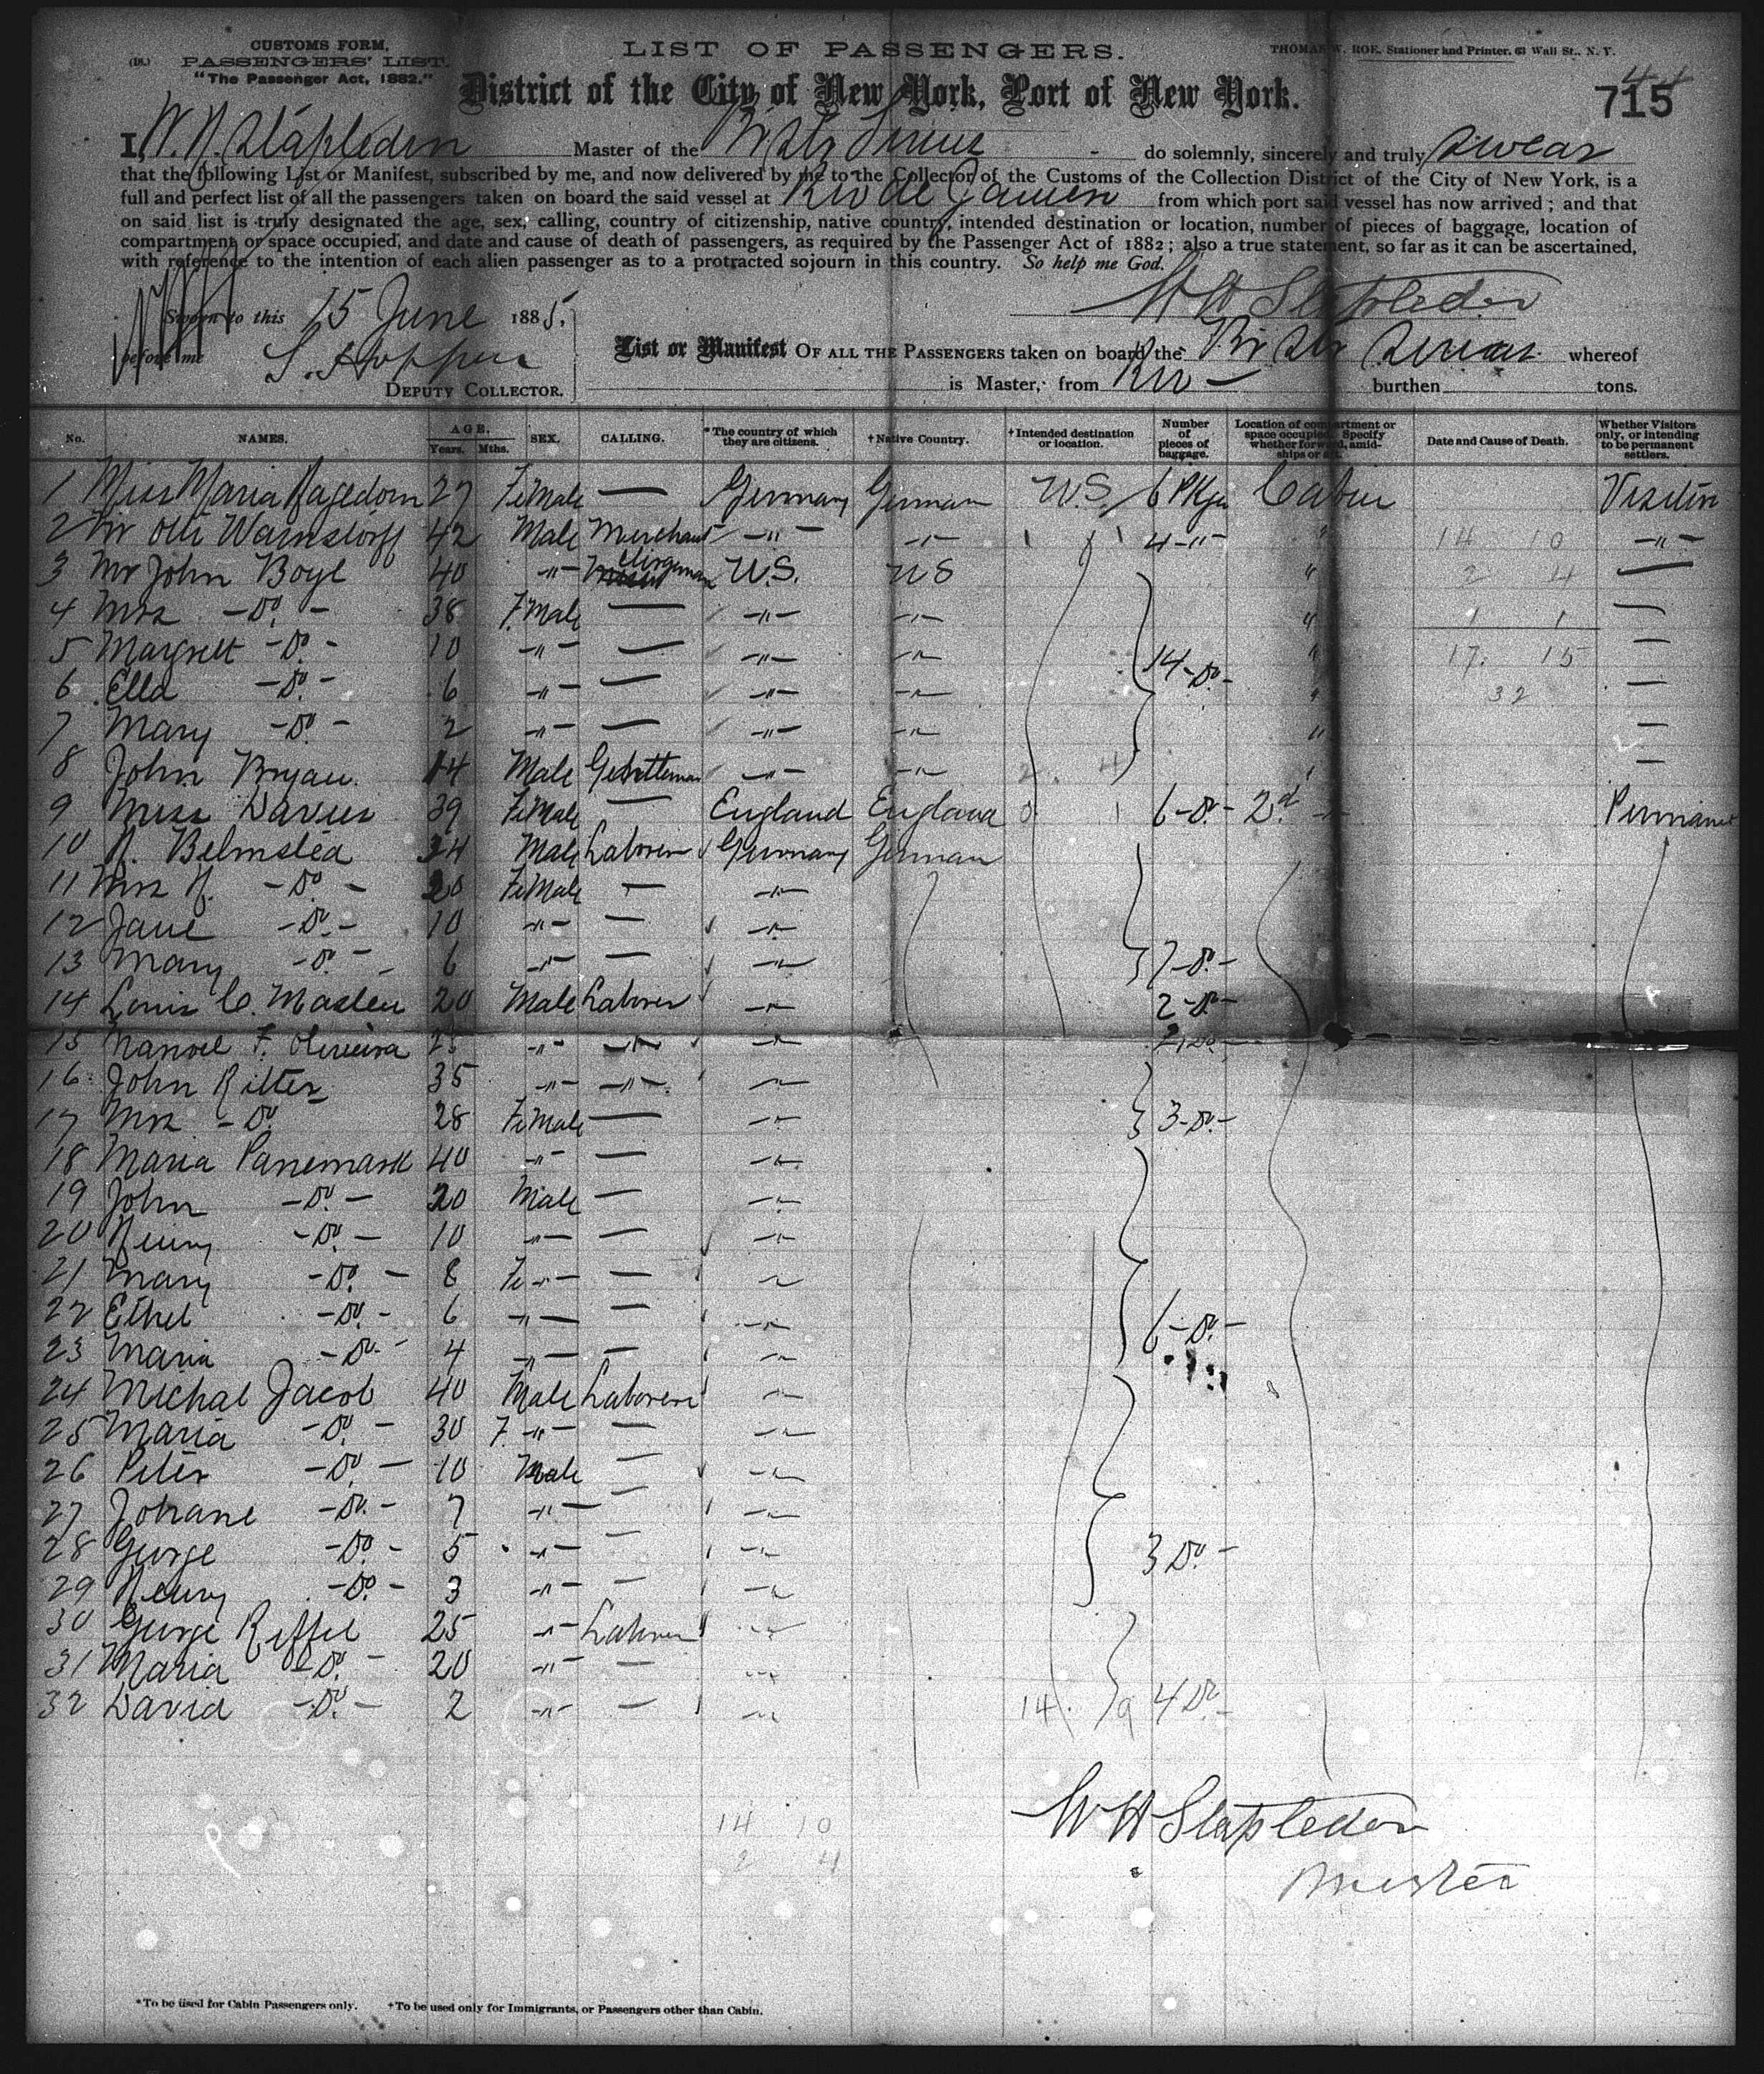 CUSTOMS FORM,
PASSENGERS' LIST.
"The Passenger Act, 1882."
LIST OF PASSENGERS.
THOMAS W. ROE, Stationer and Printer, 63 Wall St., N. Y.
District of the City of New York, Port of New York.
44
715
I, W. H. Stapledon Master of the Br Str Sirius do solemnly, sincerely and truly swear
that the following List or Manifest, subscribed by me, and now delivered by me to the Collector of the Customs of the Collection District of the City of New York, is a
full and perfect list of all the passengers taken on board the said vessel at Rio de Janeiro from which port said vessel has now arrived; and that
on said list is truly designated the age, sex, calling, country of citizenship, native country, intended destination or location, number of pieces of baggage, location of
compartment or space occupied, and date and cause of death of passengers, as required by the Passenger Act of 1882; also a true statement, so far as it can be ascertained,
with reference to the intention of each alien passenger as to a protracted sojourn in this country. So help me God.
W H Stapledon
Sworn to this 15 June 1885,
before me
DEPUTY COLLECTOR.
List or Manifest OF ALL THE PASSENGERS taken on board the Br Str Sirius whereof
is Master, from Rio — burthen tons.
No. NAMES. AGE. Years. Mths. SEX. CALLING. *The country of which they are citizens. †Native Country. †Intended destination or location. Number of pieces of baggage. Location of compartment or space occupied. Specify whether forward, amidships or aft. Date and Cause of Death. Whether Visitors only, or intending to be permanent settlers.
1 Miss Maria Hagedorn 27 FeMale — Germany German U.S. 6 Pkgs Cabin Visitin
2 Mr Otto Warnstorff 42 Male Merchant -"- -"- 4 -"- " 14 10 -"-
3 Mr John Boyl 40 -"- Clergeman U.S. US " 2 4 —
4 Mrs -Do- 38 F.Male — -"- -"- " 1 1 —
5 Margrett -Do- 10 -"- — -"- -"- 14-Do- " 17. 15 —
6 Ella -Do- 6 -"- — -"- -"- " 32 —
7 Mary -Do- 2 -"- — -"- -"- " —
8 John Bryan. 14 Male Gentleman -"- -"- —
9 Miss Davies 39 FeMale — England England 6-Do- 2d -"-
10 H. Belmsted 24 Male Laborer Germany German
11 Mrs H. -Do- 20 FeMale — -"-
12 Jane -Do- 10 -"- — -"-
13 Mary -Do- 6 -"- — -"- 7-Do-
14 Louis C. Maslen 20 Male Laborer -"- 2-Do-
15 Manoel F. Oliveira -"- -"- -"-
16 John Ritter 35 -"- -"- -"-
17 Mrs -Do 28 FeMale — -"- 3-Do-
18 Maria 40 -"- — -"-
19 John -Do- 20 Male — -"-
20 Henry -Do- 10 -"- — -"-
21 Mary -Do- 8 Fe-"- — -"-
22 Ethel -Do- 6 -"- — -"- 6-Do-
23 Maria -Do- 4 -"- — -"-
24 Michal Jacob 40 Male Laborer -"-
25 Maria -Do- 30 F. -"- — -"-
26 Peter -Do- 10 Male — -"-
27 Johane -Do- 7 -"- — -"-
28 George -Do- 5 -"- — -"- 3 Do-
29 Henry -Do- 3 -"- — -"-
30 George Riffel 25 -"- Laborer -"-
31 Maria -Do- 20 -"- — -"-
32 David -Do- 2 -"- — -"- 14. 9 4 Do-
14 10
2 4
W H Stapledon
Master
*To be used for Cabin Passengers only. †To be used only for Immigrants, or Passengers other than Cabin.